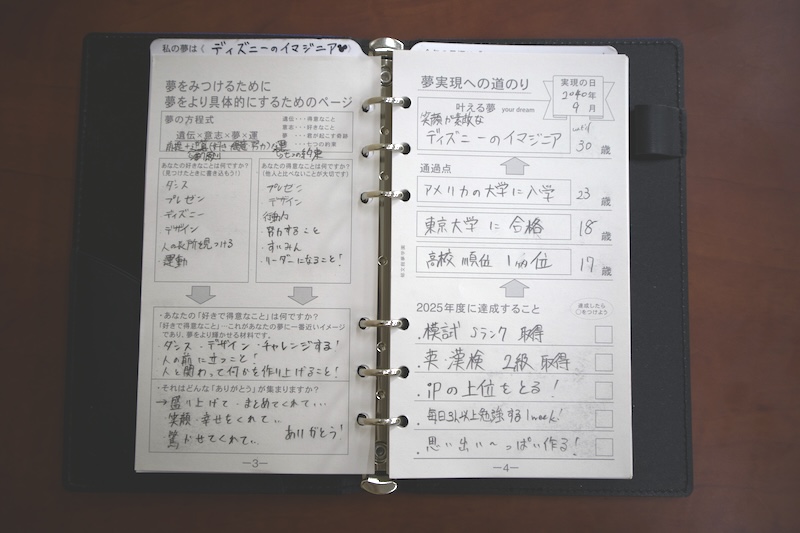 私の夢は（ ディズニーのイマジニア
夢をみつけるために
夢をより具体的にするためのページ
夢の方程式
遺伝×意志×夢×運
遺伝・・・得意なこと
意志・・・好きなこと
夢・・・君が起こす奇跡
・・・七つの約束
七つの約束
あなたの好きなことは何ですか?
(見つけたときに書き込もう!)
ダンス
プレゼン
ディズニー
デザイン
人の長所を見つける
運動
あなたの得意なことは何ですか?
(他人と比べないことが大切です)
プレゼン
デザイン
行動力
・努力すること
・すいみん
・リーダーになること!
・あなたの「好きで得意なこと」は何ですか?
「好きで得意なこと」…これがあなたの夢に一番近いイメージ
であり、夢をより輝かせる材料です。
ダンス・デザイン・チャレンジする!
人の前に立つこと!
人と関わって何かを作り上げること!
・それはどんな「ありがとう」が集まりますか?
→盛り上げて・まとめてくれて・・・
笑顔・幸せをくれて・・
驚かせてくれて・・ ありがとう!
—3—
夢実現への道のり
実現の日
2040年
9月
叶える夢 your dream
笑顔が素敵な
ディズニーのイマジニア
until
30 歳
通過点
アメリカの大学に入学 23 歳
東京大学に合格 18 歳
高校順位 1位 17 歳
2025年度に達成すること
達成したら
○をつけよう
・模試 Sランク 取得
・英・漢検 2級 取得
・iPの上位をとる!
・毎日3h以上勉強する1week!
・思い出い〜っぱい作る!
—4—